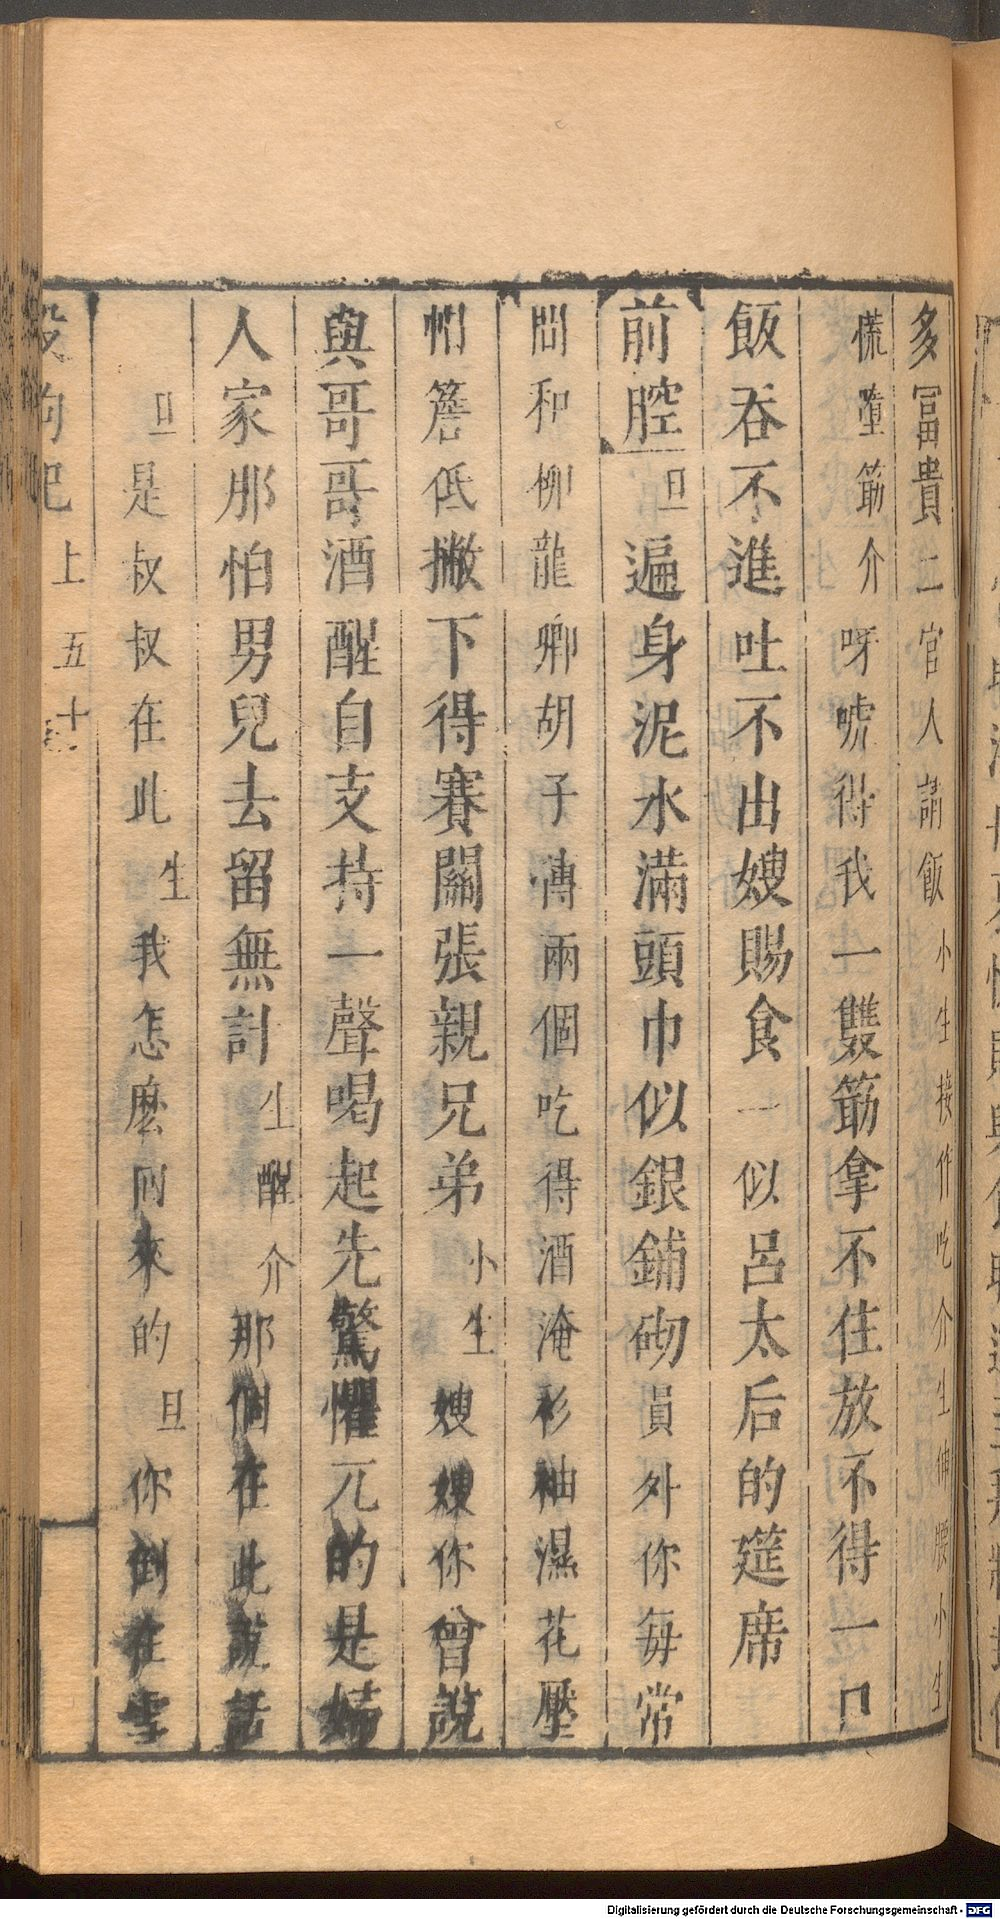 多冨貴二官人請飯小生接作吃介生伸腰小生
慌墮筯介呀唬得我一雙筯拿不住放不得一口
飯吞不進吐不出嫂賜食一似呂太后的筵席
前腔旦遍身泥水滿頭巾似銀鋪砌員外你每常
間和柳龍卿胡子傳兩個吃得酒淹衫袖濕花壓
帽簷低撇下得賽關張親兄弟小生嫂嫂你曾說
與哥哥酒醒自支持一聲喝起先驚懼兀的是
人家那怕男兒去留無計生醒介那個在此說話
旦是叔叔在此生我怎麽回來的旦你倒在雪
殺狗記上五十
Digitalisierung gefördert durch die Deutsche Forschungsgemeinschaft - DFG